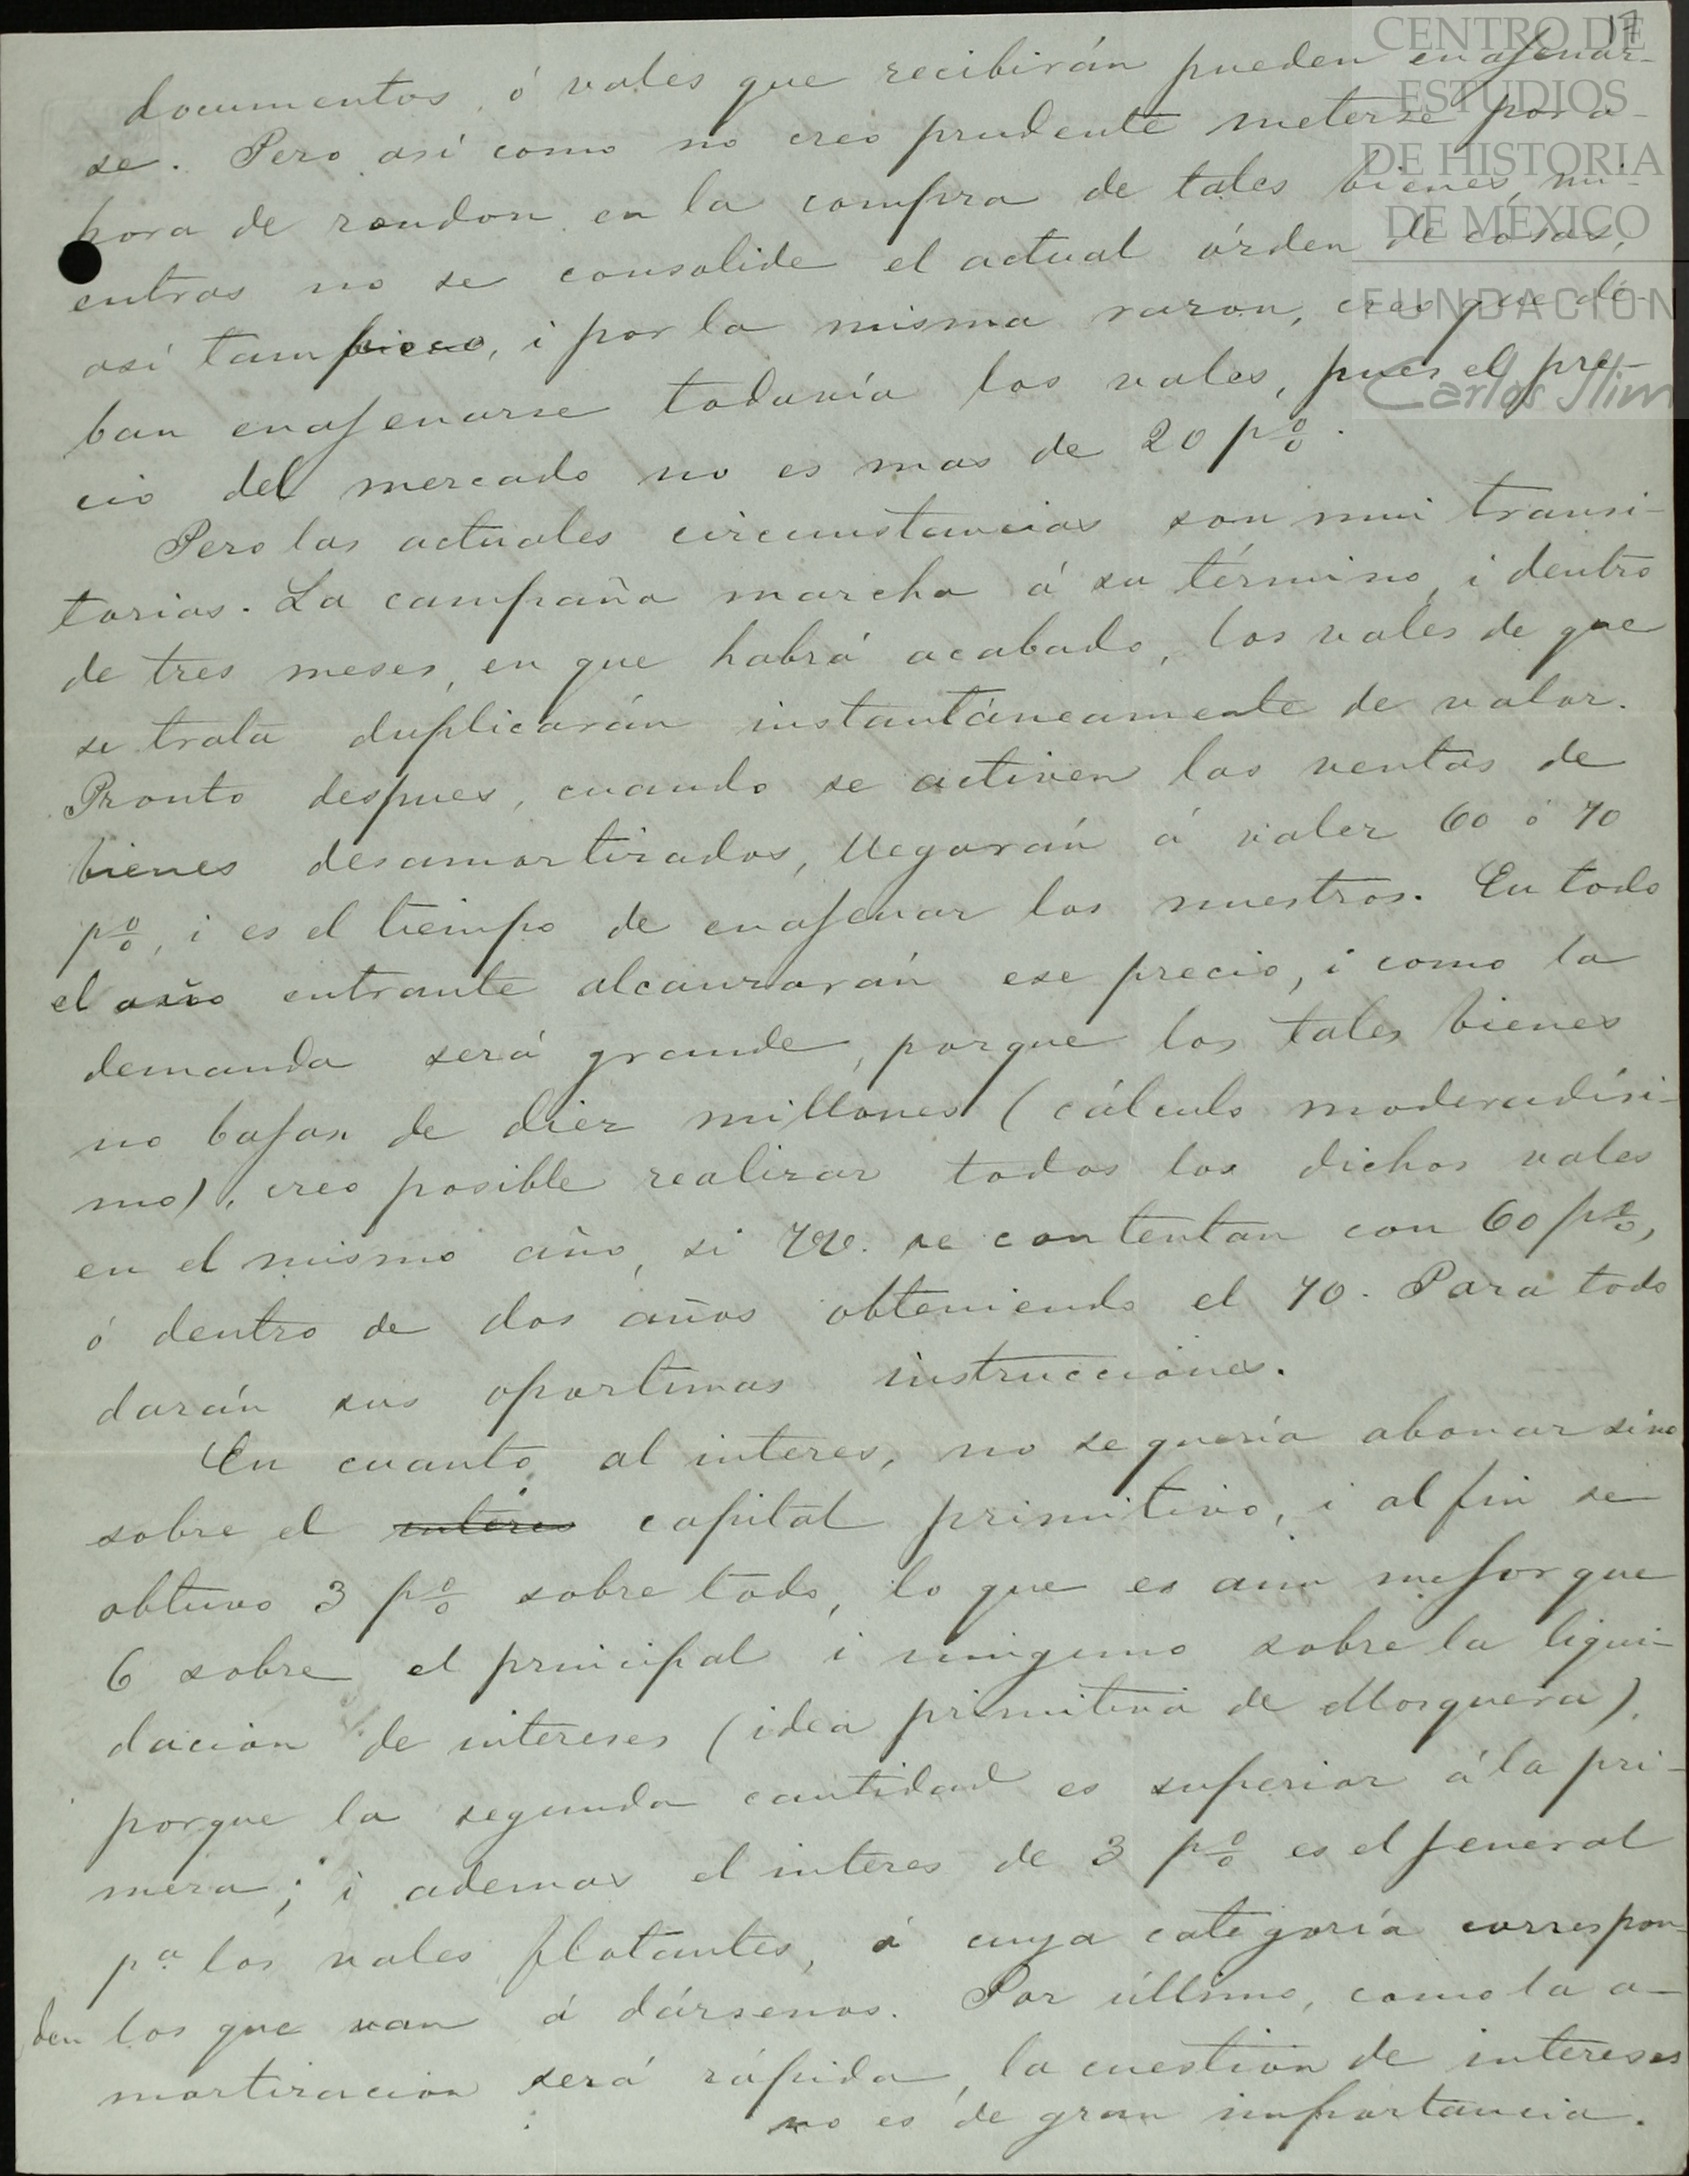 17
CENTRO DE
ESTUDIOS
DE HISTORIA
DE MÉXICO
FUNDACIÓN
Carlos Slim
documentos, ó vales que recibirán pueden enajenar-
se. Pero así como no creo prudente meterse por a-
hora de rondon en la compra de tales bienes, mi-
entras no se consolide el actual órden de cosas,
así tampoco, i por la misma razon, creo que de-
ban enajenarse todavía los vales, pues el pre-
cio del mercado no es mas de 20 p%.
Pero las actuales circunstancias son mui transi-
torias. La campaña marcha á su término, i dentro
de tres meses, en que habrá acabado, los vales de que
se trata duplicarán instantáneamente de valor.
Pronto despues, cuando se activen las ventas de
bienes desamortizados, llegarán á valer 60 ó 70
p%, i es el tiempo de enajenar los nuestros. En todo
el año entrante alcanzarán ese precio, i como la
demanda será grande, porque los tales bienes
no bajan de diez millones (cálculo moderadísi-
mo), creo posible realizar todos los dichos vales
en el mismo año, si VV. se contentan con 60 p%,
ó dentro de dos años obteniendo el 70. Para todo
darán sus oportunas instrucciones.
En cuanto al interes, no se queria abonar sino
sobre el interes capital primitivo, i al fin se
obtuvo 3 p% sobre todo, lo que es aún mejor que
6 sobre el principal i ninguno sobre la liqui-
dacion de intereses (idea primitiva de Mosquera),
porque la segunda cantidad es superior á la pri-
mera; i ademas el interes de 3 p% es el jeneral
pª los vales flotantes, á cuya categoría correspon-
den los que van á dársenos. Por último, como la a-
mortizacion será rápida, la cuestion de intereses
no es de gran importancia.